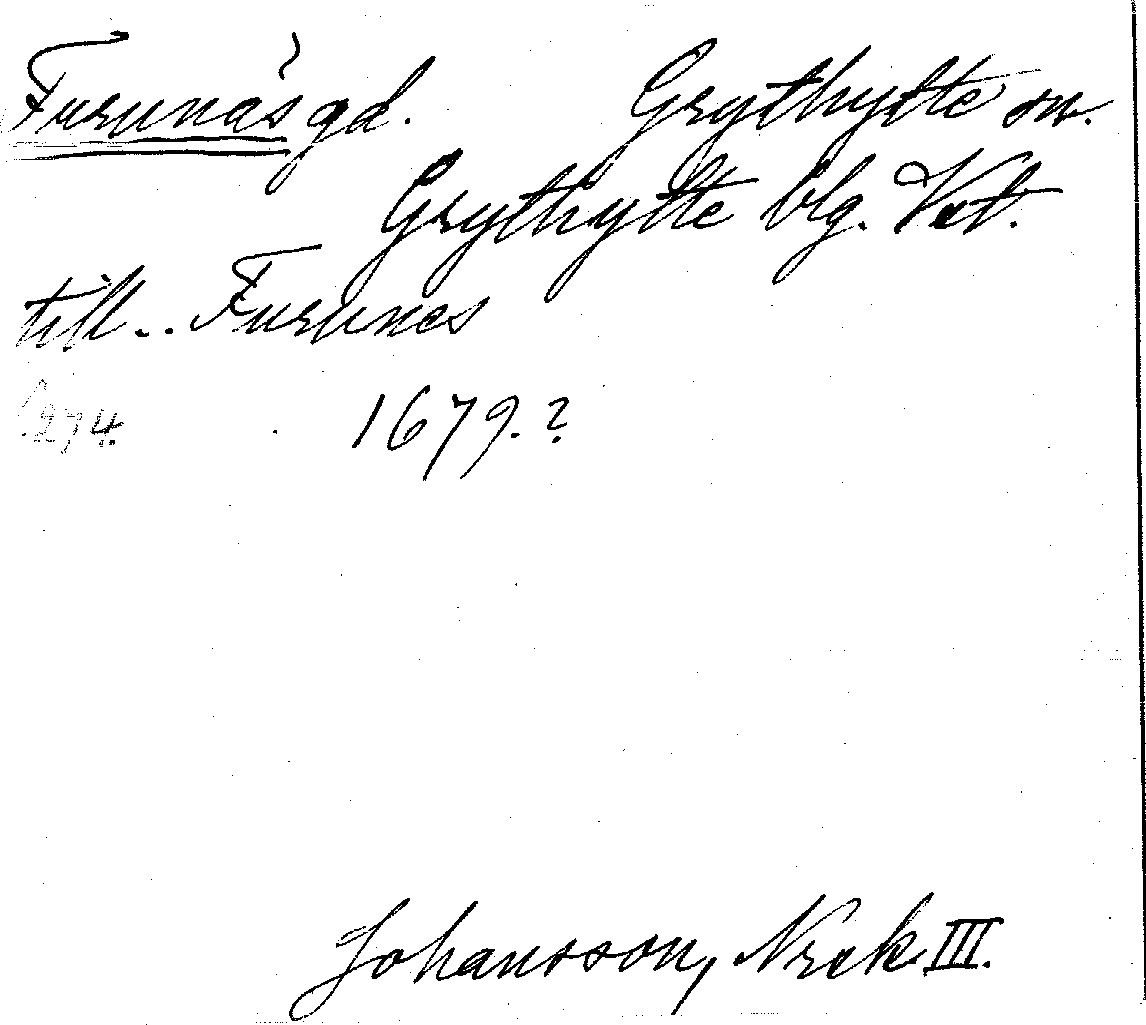 Furunäs gd. Grythytte sn.
Grythytte blg. Vst.
till... Furunes
274. 1679. ?
Johansson, Nrek III.